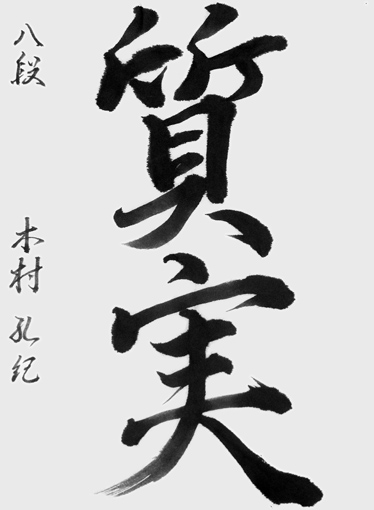 質実
八段
木村弘紀